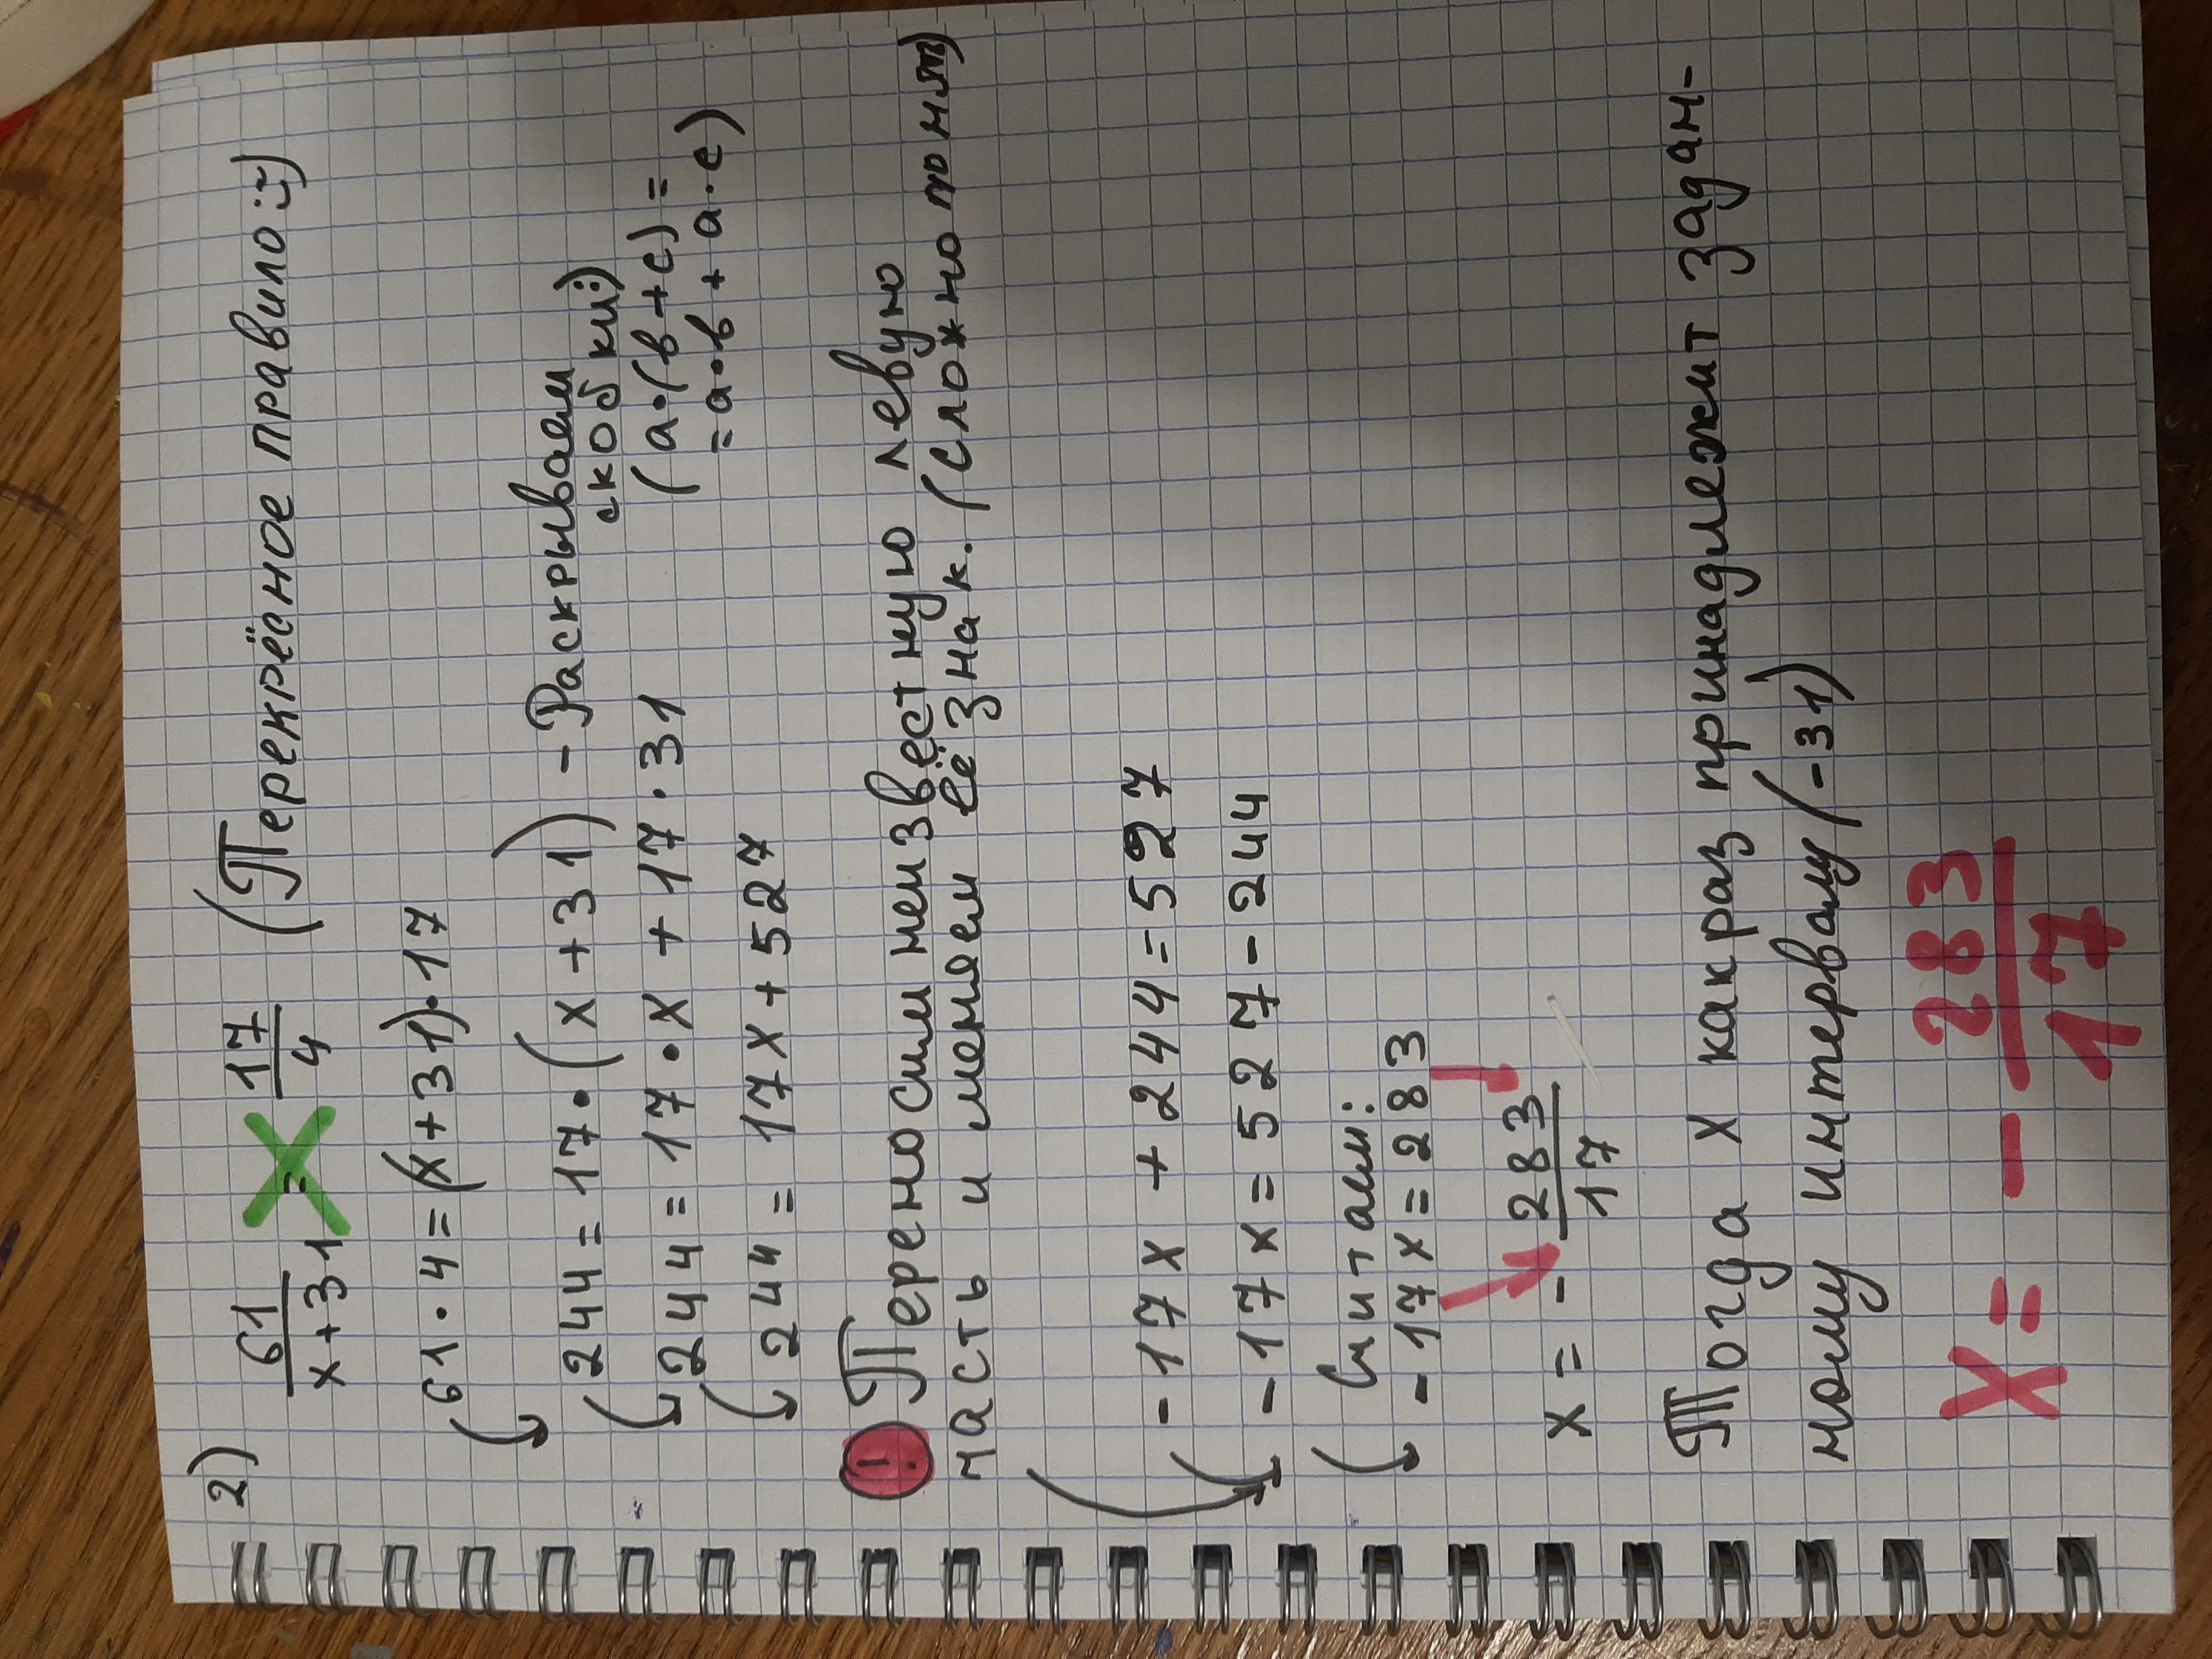 2) 61/(x+31) = 17/4 (Перекрёсное правило :))
61·4=(x+31)·17
244=17·(x+31) - Раскрываем скобки:)
244=17·x+17·31 (а·(в+с)=
244= 17x+527 =а·в+а·с)
! Переносим неизвестную левую
часть и меняем её знак. (сложно понят)
-17x + 244=527
-17x=527-244
Считаем:
-17x=283
x=- 283/17
Тогда x как раз принадлежит задан-
ному интервалу (-31)
x= - 283/17